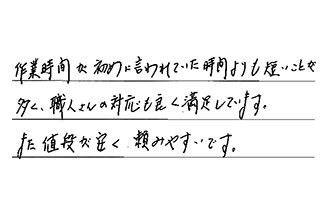 作業時間が初めに言われていた時間よりも短いことが
多く、職人さんの対応も良く満足しています。
また値段が安く頼みやすいです。